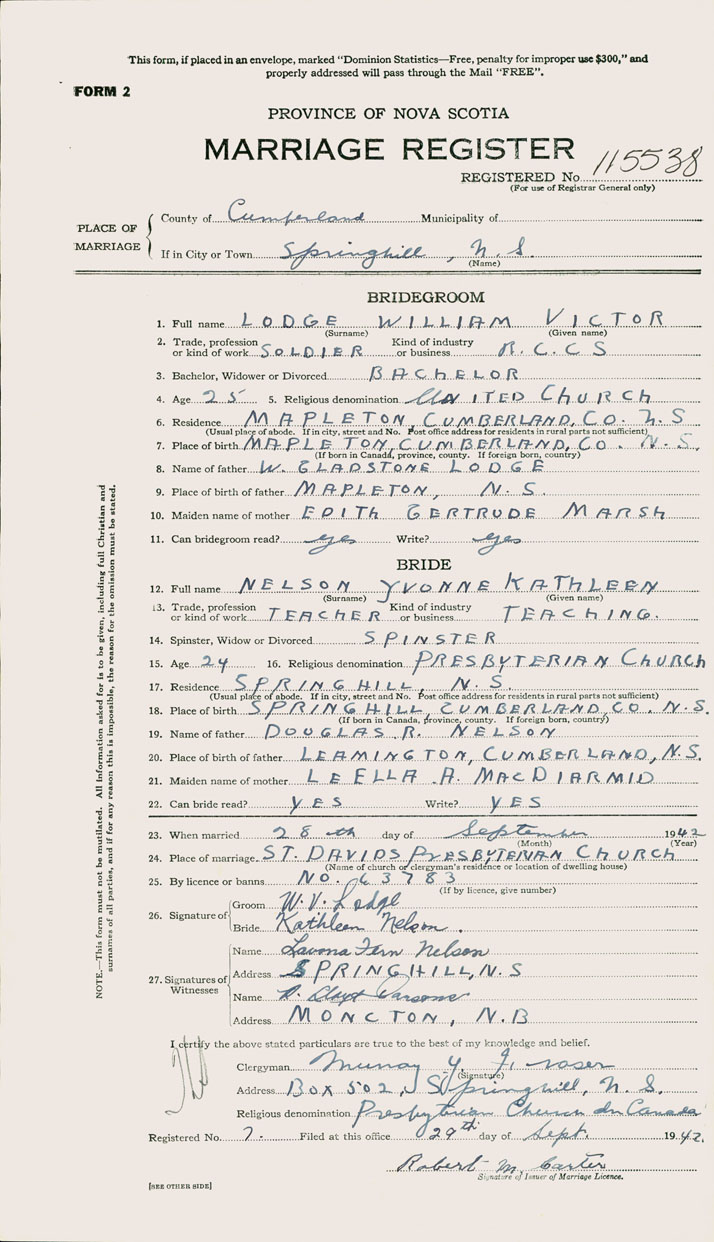 This form, if placed in an envelope, marked "Dominion Statistics—Free, penalty for improper use $300," and
properly addressed will pass through the Mail "FREE".
FORM 2
PROVINCE OF NOVA SCOTIA
MARRIAGE REGISTER
REGISTERED No. 115538
(For use of Registrar General only)
PLACE OF MARRIAGE
County of Cumberland Municipality of
If in City or Town Springhill, N.S.
(Name)
BRIDEGROOM
1. Full name LODGE WILLIAM VICTOR
(Surname) (Given name)
2. Trade, profession or kind of work SOLDIER Kind of industry or business R.C.C.S
3. Bachelor, Widower or Divorced BACHELOR
4. Age 25 5. Religious denomination UNITED CHURCH
6. Residence MAPLETON, CUMBERLAND, CO. N.S
(Usual place of abode. If in city, street and No. Post office address for residents in rural parts not sufficient)
7. Place of birth MAPLETON, CUMBERLAND, CO. N.S.
(If born in Canada, province, county. If foreign born, country)
8. Name of father W. GLADSTONE LODGE
9. Place of birth of father MAPLETON, N.S.
10. Maiden name of mother EDITH GERTRUDE MARSH
11. Can bridegroom read? yes Write? yes
BRIDE
12. Full name NELSON YVONNE KATHLEEN
(Surname) (Given name)
13. Trade, profession or kind of work TEACHER Kind of industry or business TEACHING.
14. Spinster, Widow or Divorced SPINSTER
15. Age 24 16. Religious denomination PRESBYTERIAN CHURCH
17. Residence SPRINGHILL, N.S.
(Usual place of abode. If in city, street and No. Post office address for residents in rural parts not sufficient)
18. Place of birth SPRINGHILL, CUMBERLAND, CO. N.S.
(If born in Canada, province, county. If foreign born, country)
19. Name of father DOUGLAS R. NELSON
20. Place of birth of father LEAMINGTON, CUMBERLAND, N.S.
21. Maiden name of mother LEELLA A. MACDIARMID
22. Can bride read? YES Write? YES
23. When married 28th day of September 1942
(Month) (Year)
24. Place of marriage ST. DAVIDS PRESBYTERIAN CHURCH
(Name of church or clergyman's residence or location of dwelling house)
25. By licence or banns NO. C3783
(If by licence, give number)
26. Signature of
Groom W. V. Lodge
Bride Kathleen Nelson.
27. Signatures of Witnesses
Name Lavona Fern Nelson
Address SPRINGHILL, N.S
Name Parsons
Address MONCTON, N.B
I certify the above stated particulars are true to the best of my knowledge and belief.
Clergyman Murray Y. Fraser
(Signature)
Address Box 502, Springhill, N.S.
Religious denomination Presbyterian Church in Canada
Registered No. 7. Filed at this office 29th day of Sept. 1942.
Robert M. Carter
Signature of Issuer of Marriage Licence.
[SEE OTHER SIDE]
NOTE.—This form must not be mutilated. All information asked for is to be given, including full Christian and
surnames of all parties, and if for any reason this is impossible, the reason for the omission must be stated.